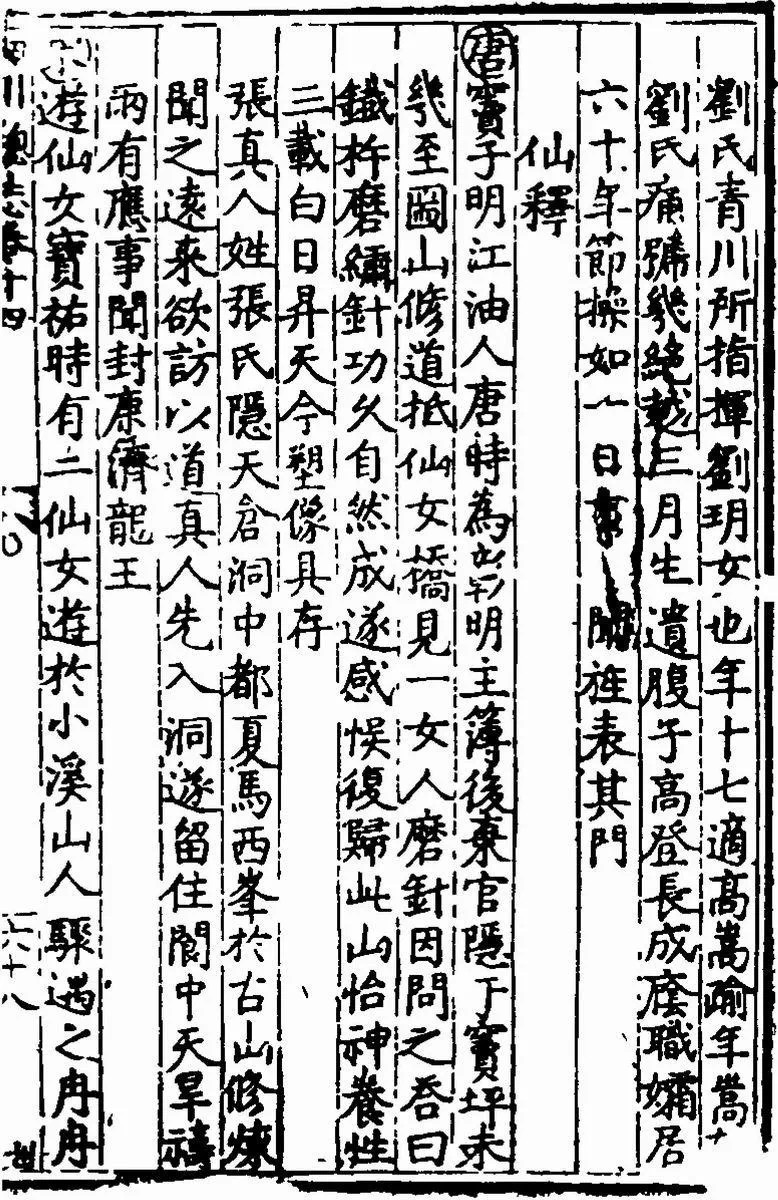 劉氏青川所指揮劉玥女也年十七適高嵩踰年嵩
劉氏痛號幾絕越三月生遺腹子高登長成廕職孀居
六十年節操如一日事聞旌表其門
仙釋
唐竇子明江油人唐時為彰明主簿後棄官隱于竇坪未
幾至圌山修道抵仙女橋見一女人磨針因問之荅曰
鐵杵磨繡針功久自然成遂感悞復歸此山怡神養性
三載白日昇天今塑像具存
張真人姓張氏隱天倉洞中都夏馬西峯於古山修煉
聞之遠来欲訪以道真人先入洞遂留住閬中天旱禱
雨有應事聞封康濟龍王
遊仙女寶祐時有二仙女遊於小溪山人驟遇之冉冉
川總志卷十四
六十八